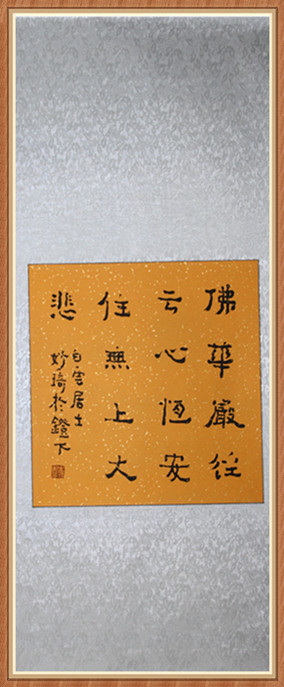 佛華嚴經
云心恆安
住無上大
悲
白雲居士
妙琦於鐙下